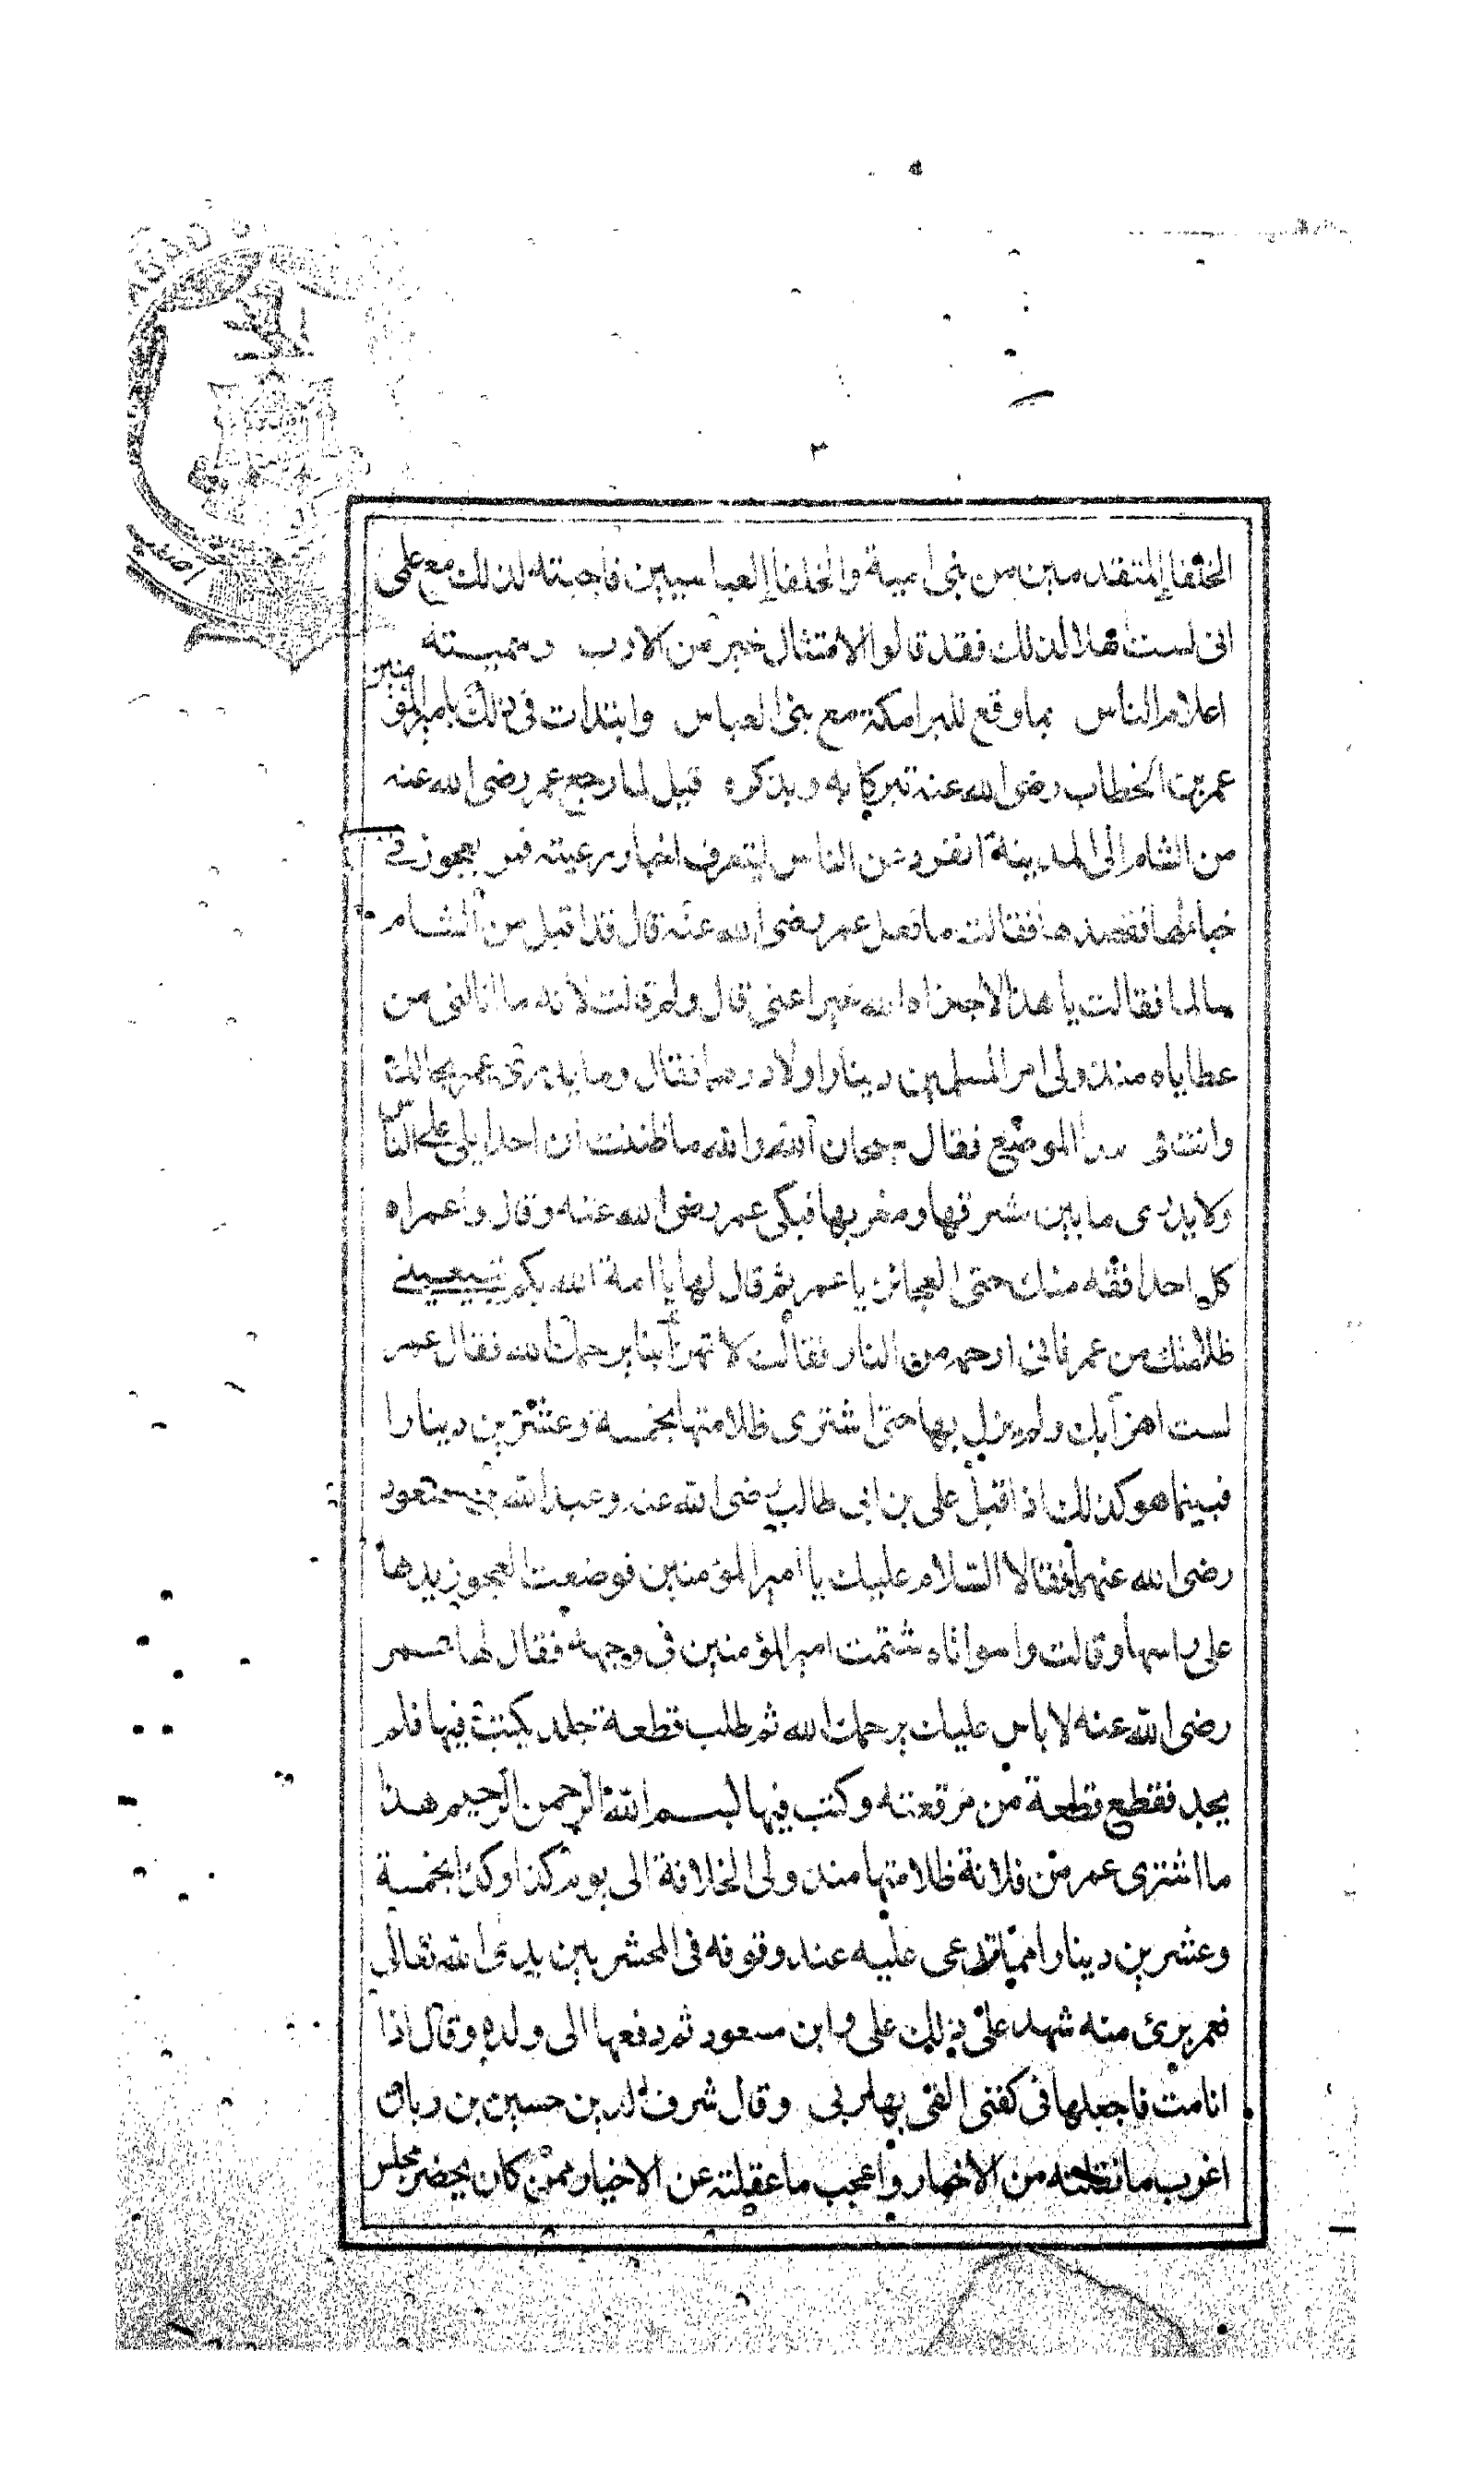 ٣
الخلفا المتقدمين من بنى امية والخلفا العباسيين فاجبته لذلك مع علمى
انى لست اهلا لذلك فقد قالوا الامتثال خير من الادب وسميته
اعلام الناس بما وقع للبرامكة مع بنى العباس وابتدات فى ذلك بامير المؤمنين
عمر بن الخطاب رضى الله عنه تبركا به وبذكره قيل لما رجع عمر رضى الله عنه
من الشام الى المدينة انفرد عن الناس ليتعرف اخبار رعيته فمر بعجوز فى
خبا لها فقصدها فقالت ما فعل عمر رضى الله عنه قال قد اقبل من الشام
سالما فقالت يا هذا لا جزاه الله خيرا عنى قال ولم قالت لانه ما انالنى من
عطاياه منذ ولى امر المسلمين دينارا ولا درهما فقال وما يدرى عمر بحالك
وانت فى هذا الموضع فقال سبحان الله والله ما ظننت ان احدا يلى على الناس
ولا يدرى ما بين مشرقها ومغربها فبكى عمر رضى الله عنه وقال واعمراه
كل احد افقه منك حتى العجائز يا عمر ثم قال لها يا امة الله بكم تبيعينى
ظلامتك من عمر فانى ارحمه من النار فقالت لا تهزأ بنا يرحمك الله فقال عمر
لست اهزأ بك ولم يزل بها حتى اشترى ظلامتها بخمسة وعشرين دينارا
فبينما هو كذلك اذ اقبل على بن ابى طالب رضى الله عنه وعبد الله بن مسعود
رضى الله عنهما فقالا السلام عليك يا امير المؤمنين فوضعت العجوز يدها
على راسها وقالت واسواتاه شتمت امير المؤمنين فى وجهه فقال لها عمر
رضى الله عنه لا باس عليك يرحمك الله ثم طلب قطعة جلد يكتب فيها فلم
يجد فقطع قطعة من مرقعته وكتب فيها بسم الله الرحمن الرحيم هذا
ما اشترى عمر من فلانة ظلامتها منذ ولى الخلافة الى يوم كذا وكذا بخمسة
وعشرين دينارا مما تدعى عليه عند وقوفه فى المحشر بين يدى الله تعالى
فعمر برئ منه شهد على ذلك على وابن مسعود ثم دفعها الى ولده وقال اذا
انا مت فاجعلها فى كفنى القى بها ربى وقال شرف الدين حسين بن ريان
اغرب ما نقلته من الاخبار واعجب ما عقلته عن الاخيار ممن كان يحضر مجلس